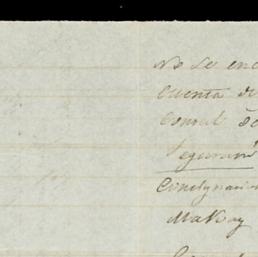 No se enc
cuenta de
Consul de
Seguram
Consignacion
MaKay